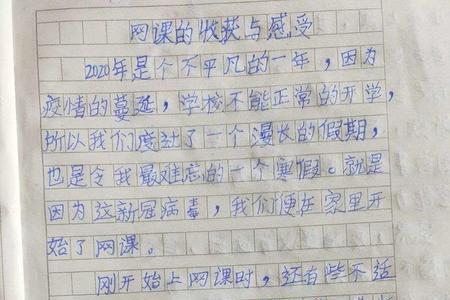 网课的收获与感受
2020年是个不平凡的一年，因为
疫情的蔓延，学校不能正常的开学，
所以我们度过了一个漫长的假期，
也是令我最难忘的一个寒假。就是
因为这新冠病毒，我们便在家里开
始了网课。
刚开始上网课时，还有些不适